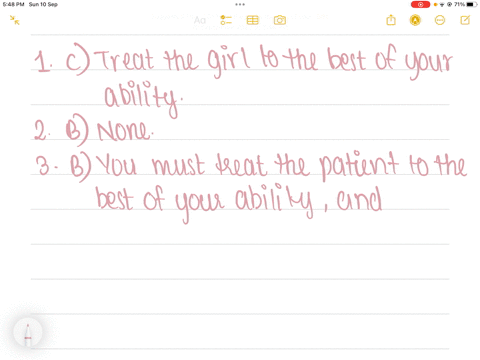 5:48 PM Sun 10 Sep
71%
Aa
1. C) Treat the girl to the best of your
ability.
2. B) None.
3. B) You must treat the patient to the
best of your ability, and